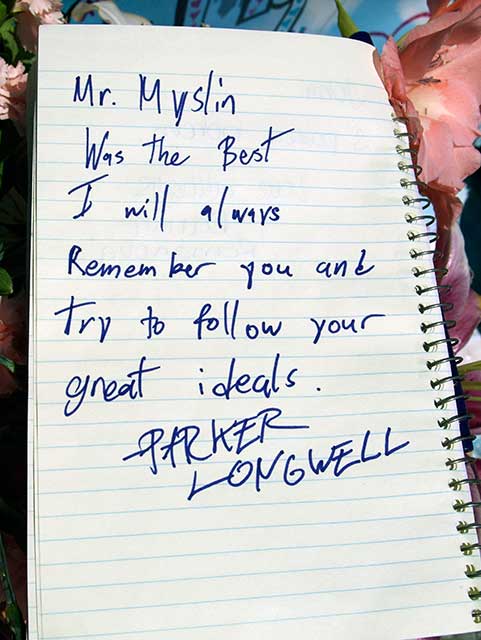 Mr. Myslin
Was the Best
I will always
Remember you and
try to follow your
great ideals.
PARKER
LONGWELL